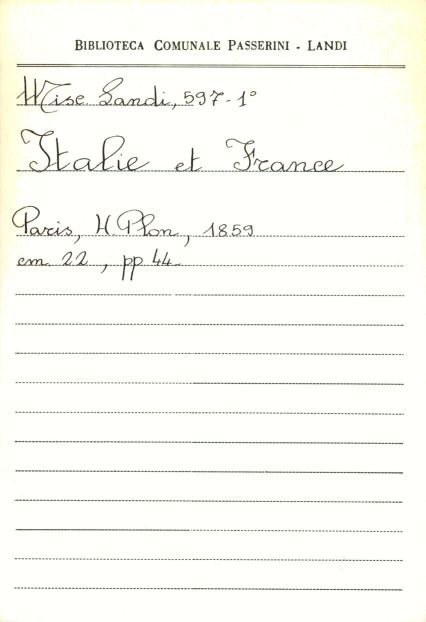 BIBLIOTECA COMUNALE PASSERINI - LANDI
Misc. Landi, 597-1°
Italie et France
Paris, H. Plon, 1859
cm. 22, pp 44